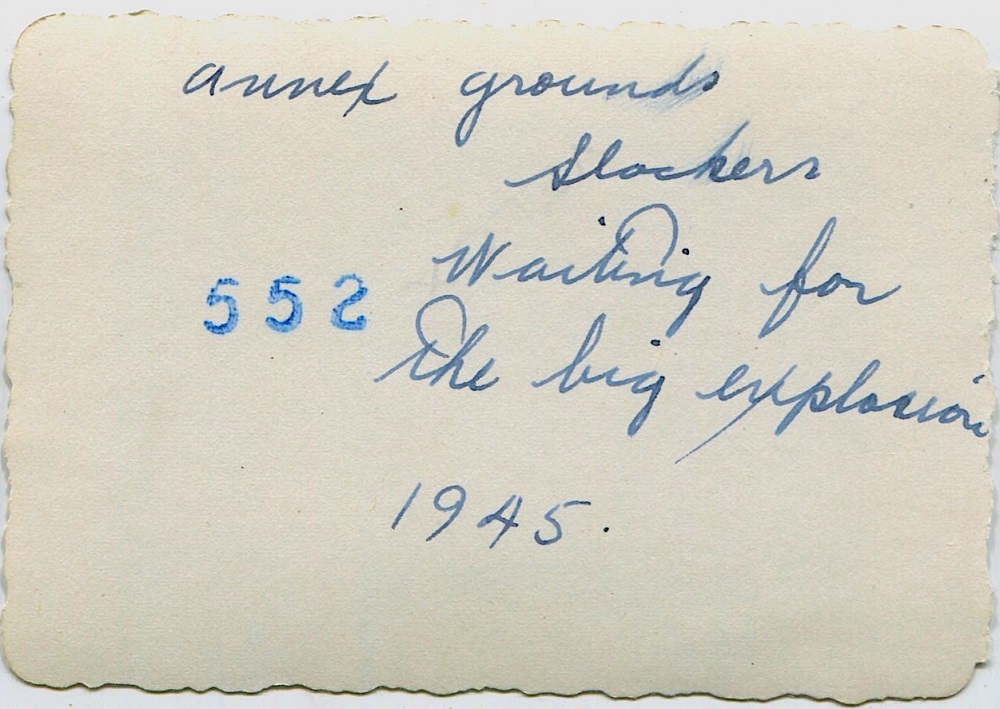 annex grounds
Slackers
Waiting for
552
the big explosion
1945.